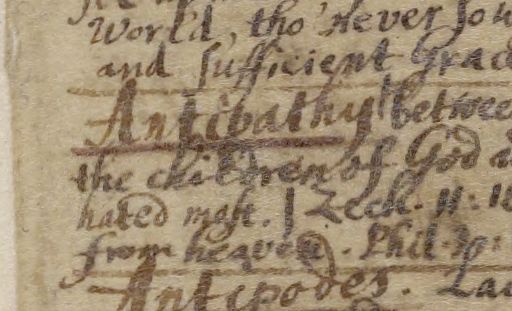 World, tho' never so w
and sufficient Grac
Antipathy between
the children of God a
hated most. | Zech. 11. 
from heaven. Phil. 
Antipodes. La